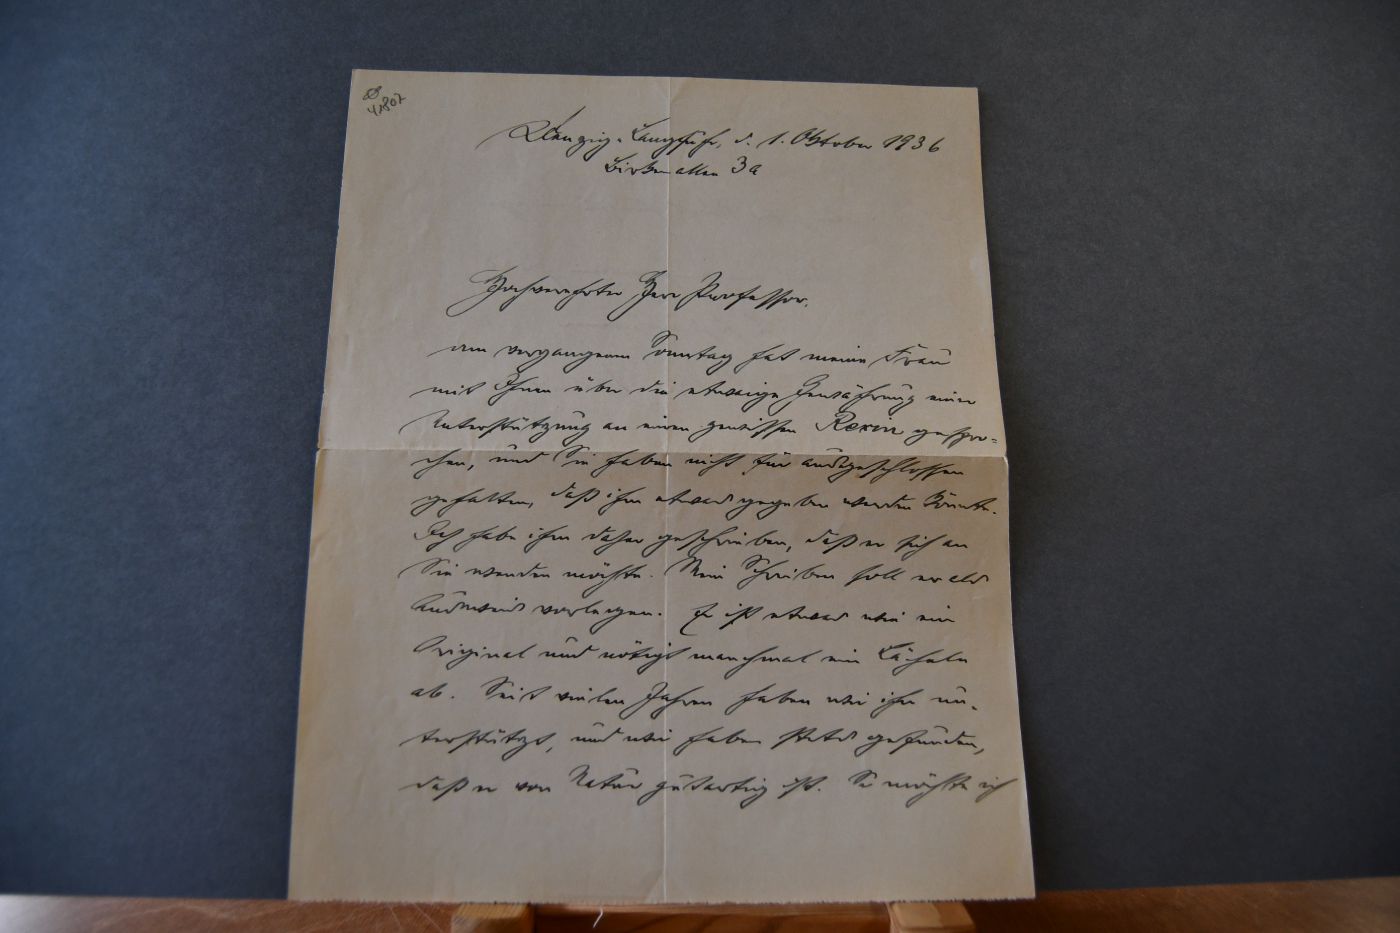 41807
Danzig-Langfuhr, d. 1. Oktober 1936
Birkenallee 3a
Hochverehrter Herr Professor.
am vergangenen Sonntag hat meine Frau
mit Ihnen über die etwaige Gewährung einer
Unterstützung an einen gewissen Rexin gespro-
chen, und Sie haben nicht für ausgeschlossen
gehalten, daß ihm etwas gegeben werden könnte.
Ich habe ihm daher geschrieben, daß er sich an
Sie wenden möchte. Mein Schreiben soll er als
Ausweis vorlegen. Er ist etwas wie ein
Original und nötigt manchmal ein Lächeln
ab. Seit vielen Jahren haben wir ihn un-
terstützt, und wir haben stets gefunden,
daß er von Natur gutartig ist. So möchte ich